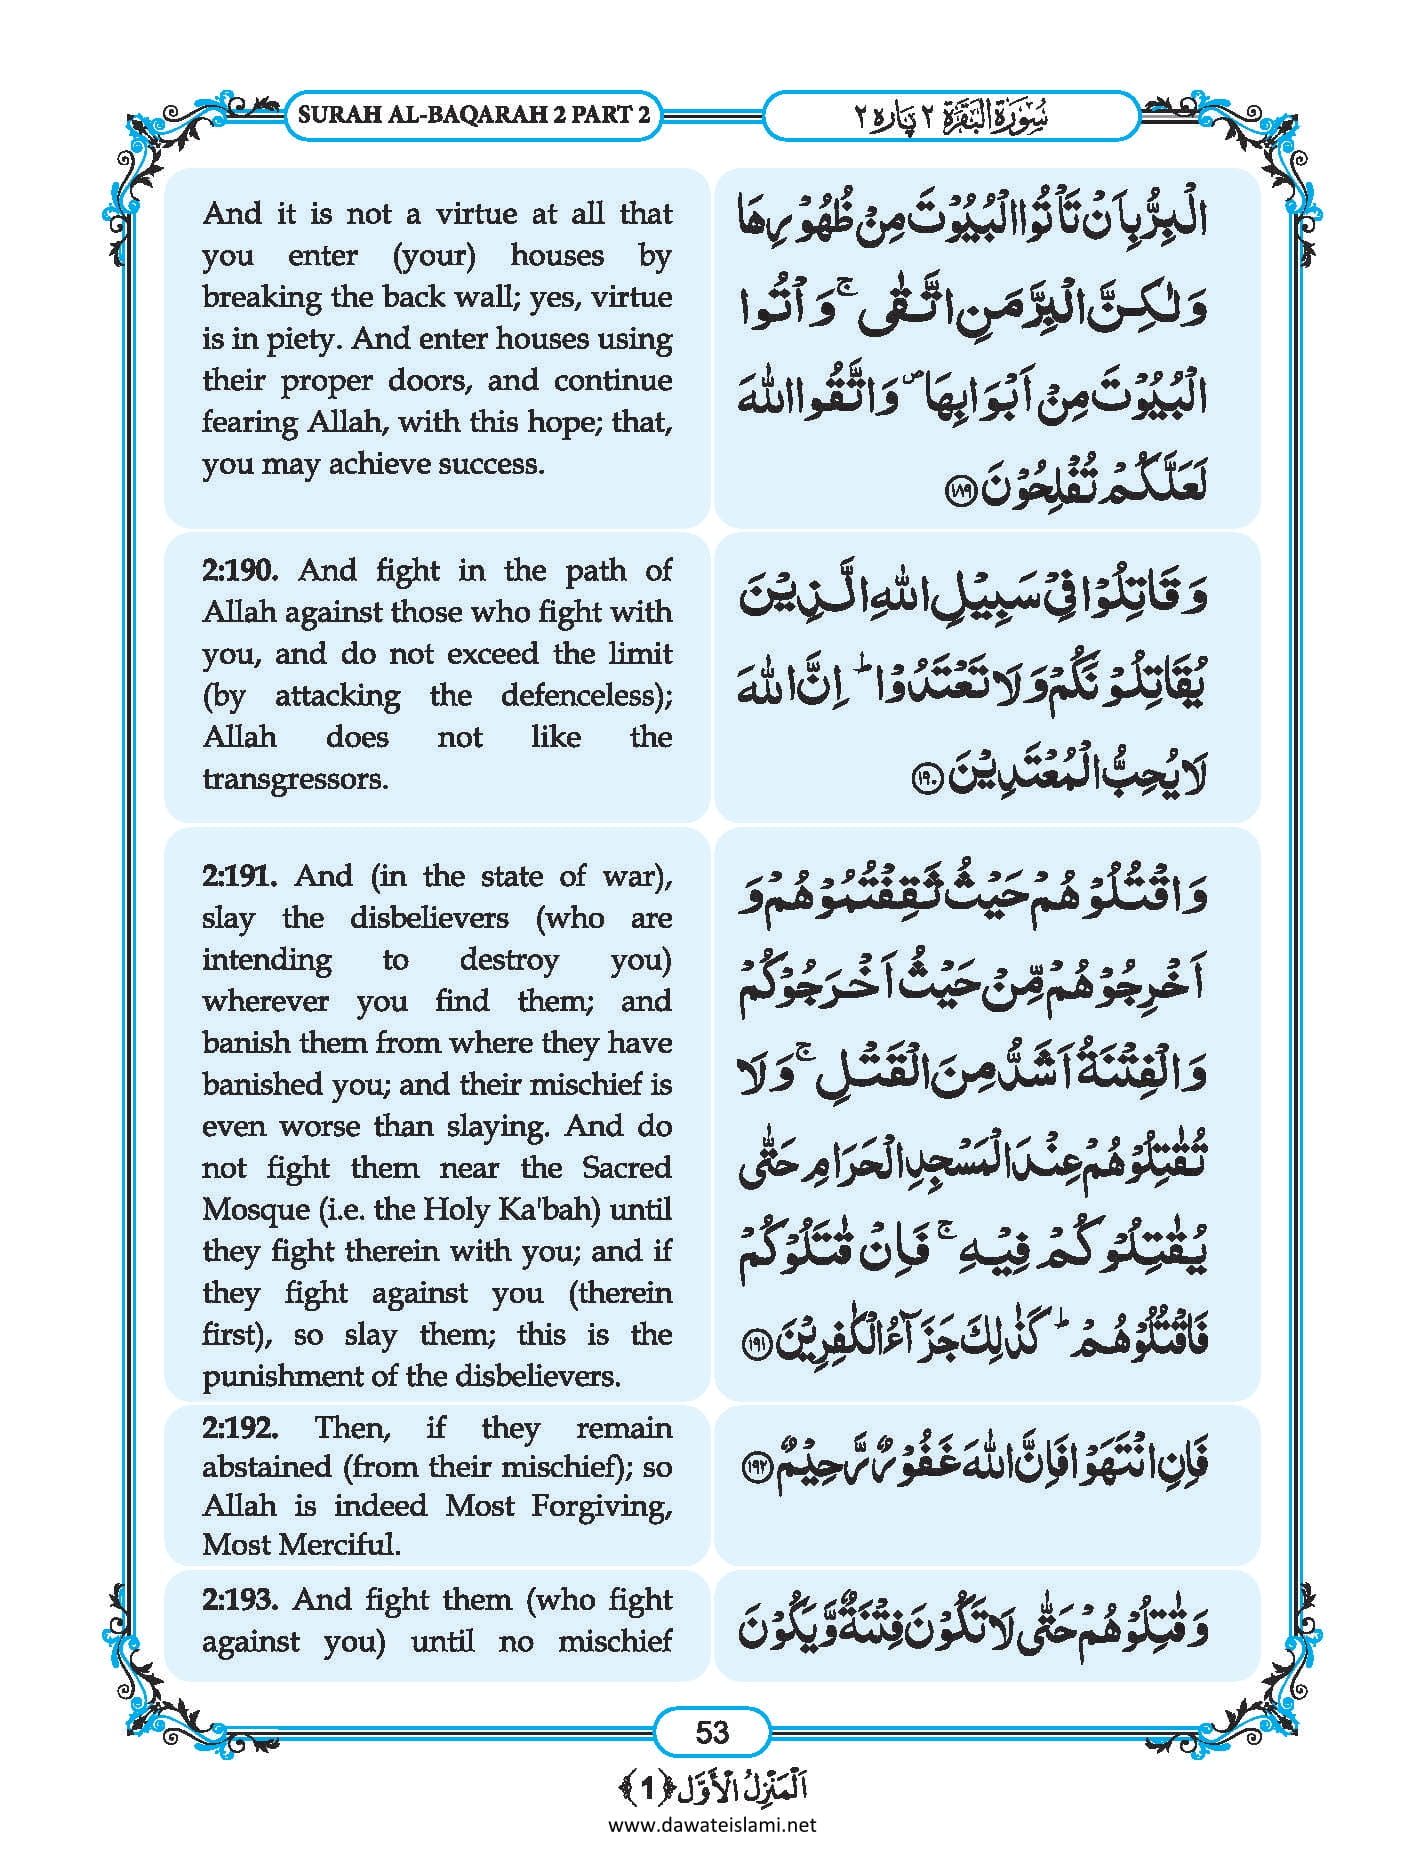 SURAH AL-BAQARAH 2 PART 2
سُوۡرَۃُ الۡبَقَرَۃ ٢ پارہ ٢
And it is not a virtue at all that
you enter (your) houses by
breaking the back wall; yes, virtue
is in piety. And enter houses using
their proper doors, and continue
fearing Allah, with this hope; that,
you may achieve success.
الۡبِرُّ بِاَنۡ تَاۡتُوا الۡبُیُوۡتَ مِنۡ ظُهُوۡرِهَا
وَلٰکِنَّ الۡبِرَّ مَنِ اتَّقٰیۚ وَاۡتُوا
الۡبُیُوۡتَ مِنۡ اَبۡوَابِهَا۪ وَاتَّقُوا اللّٰهَ
لَعَلَّکُمۡ تُفۡلِحُوۡنَ ﴿۱۸۹﴾
2:190. And fight in the path of
Allah against those who fight with
you, and do not exceed the limit
(by attacking the defenceless);
Allah does not like the
transgressors.
وَقَاتِلُوۡا فِیۡ سَبِیۡلِ اللّٰهِ الَّذِیۡنَ
یُقَاتِلُوۡنَکُمۡ وَلَا تَعۡتَدُوۡاؕ اِنَّ اللّٰهَ
لَا یُحِبُّ الۡمُعۡتَدِیۡنَ ﴿۱۹۰﴾
2:191. And (in the state of war),
slay the disbelievers (who are
intending to destroy you)
wherever you find them; and
banish them from where they have
banished you; and their mischief is
even worse than slaying. And do
not fight them near the Sacred
Mosque (i.e. the Holy Ka'bah) until
they fight therein with you; and if
they fight against you (therein
first), so slay them; this is the
punishment of the disbelievers.
وَاقۡتُلُوۡهُمۡ حَیۡثُ ثَقِفۡتُمُوۡهُمۡ وَ
اَخۡرِجُوۡهُمۡ مِّنۡ حَیۡثُ اَخۡرَجُوۡکُمۡ
وَالۡفِتۡنَةُ اَشَدُّ مِنَ الۡقَتۡلِۚ وَلَا
تُقٰتِلُوۡهُمۡ عِنۡدَ الۡمَسۡجِدِ الۡحَرَامِ حَتّٰی
یُقٰتِلُوۡکُمۡ فِیۡهِۚ فَاِنۡ قٰتَلُوۡکُمۡ
فَاقۡتُلُوۡهُمۡؕ کَذٰلِکَ جَزَآءُ الۡکٰفِرِیۡنَ ﴿۱۹۱﴾
2:192. Then, if they remain
abstained (from their mischief); so
Allah is indeed Most Forgiving,
Most Merciful.
فَاِنِ انۡتَهَوۡا فَاِنَّ اللّٰهَ غَفُوۡرٌ رَّحِیۡمٌ ﴿۱۹۲﴾
2:193. And fight them (who fight
against you) until no mischief
وَقٰتِلُوۡهُمۡ حَتّٰی لَا تَکُوۡنَ فِتۡنَةٌ وَّیَکُوۡنَ
53
اَلۡمَنۡزِلُ الۡاَوَّل ﴿1﴾
www.dawateislami.net